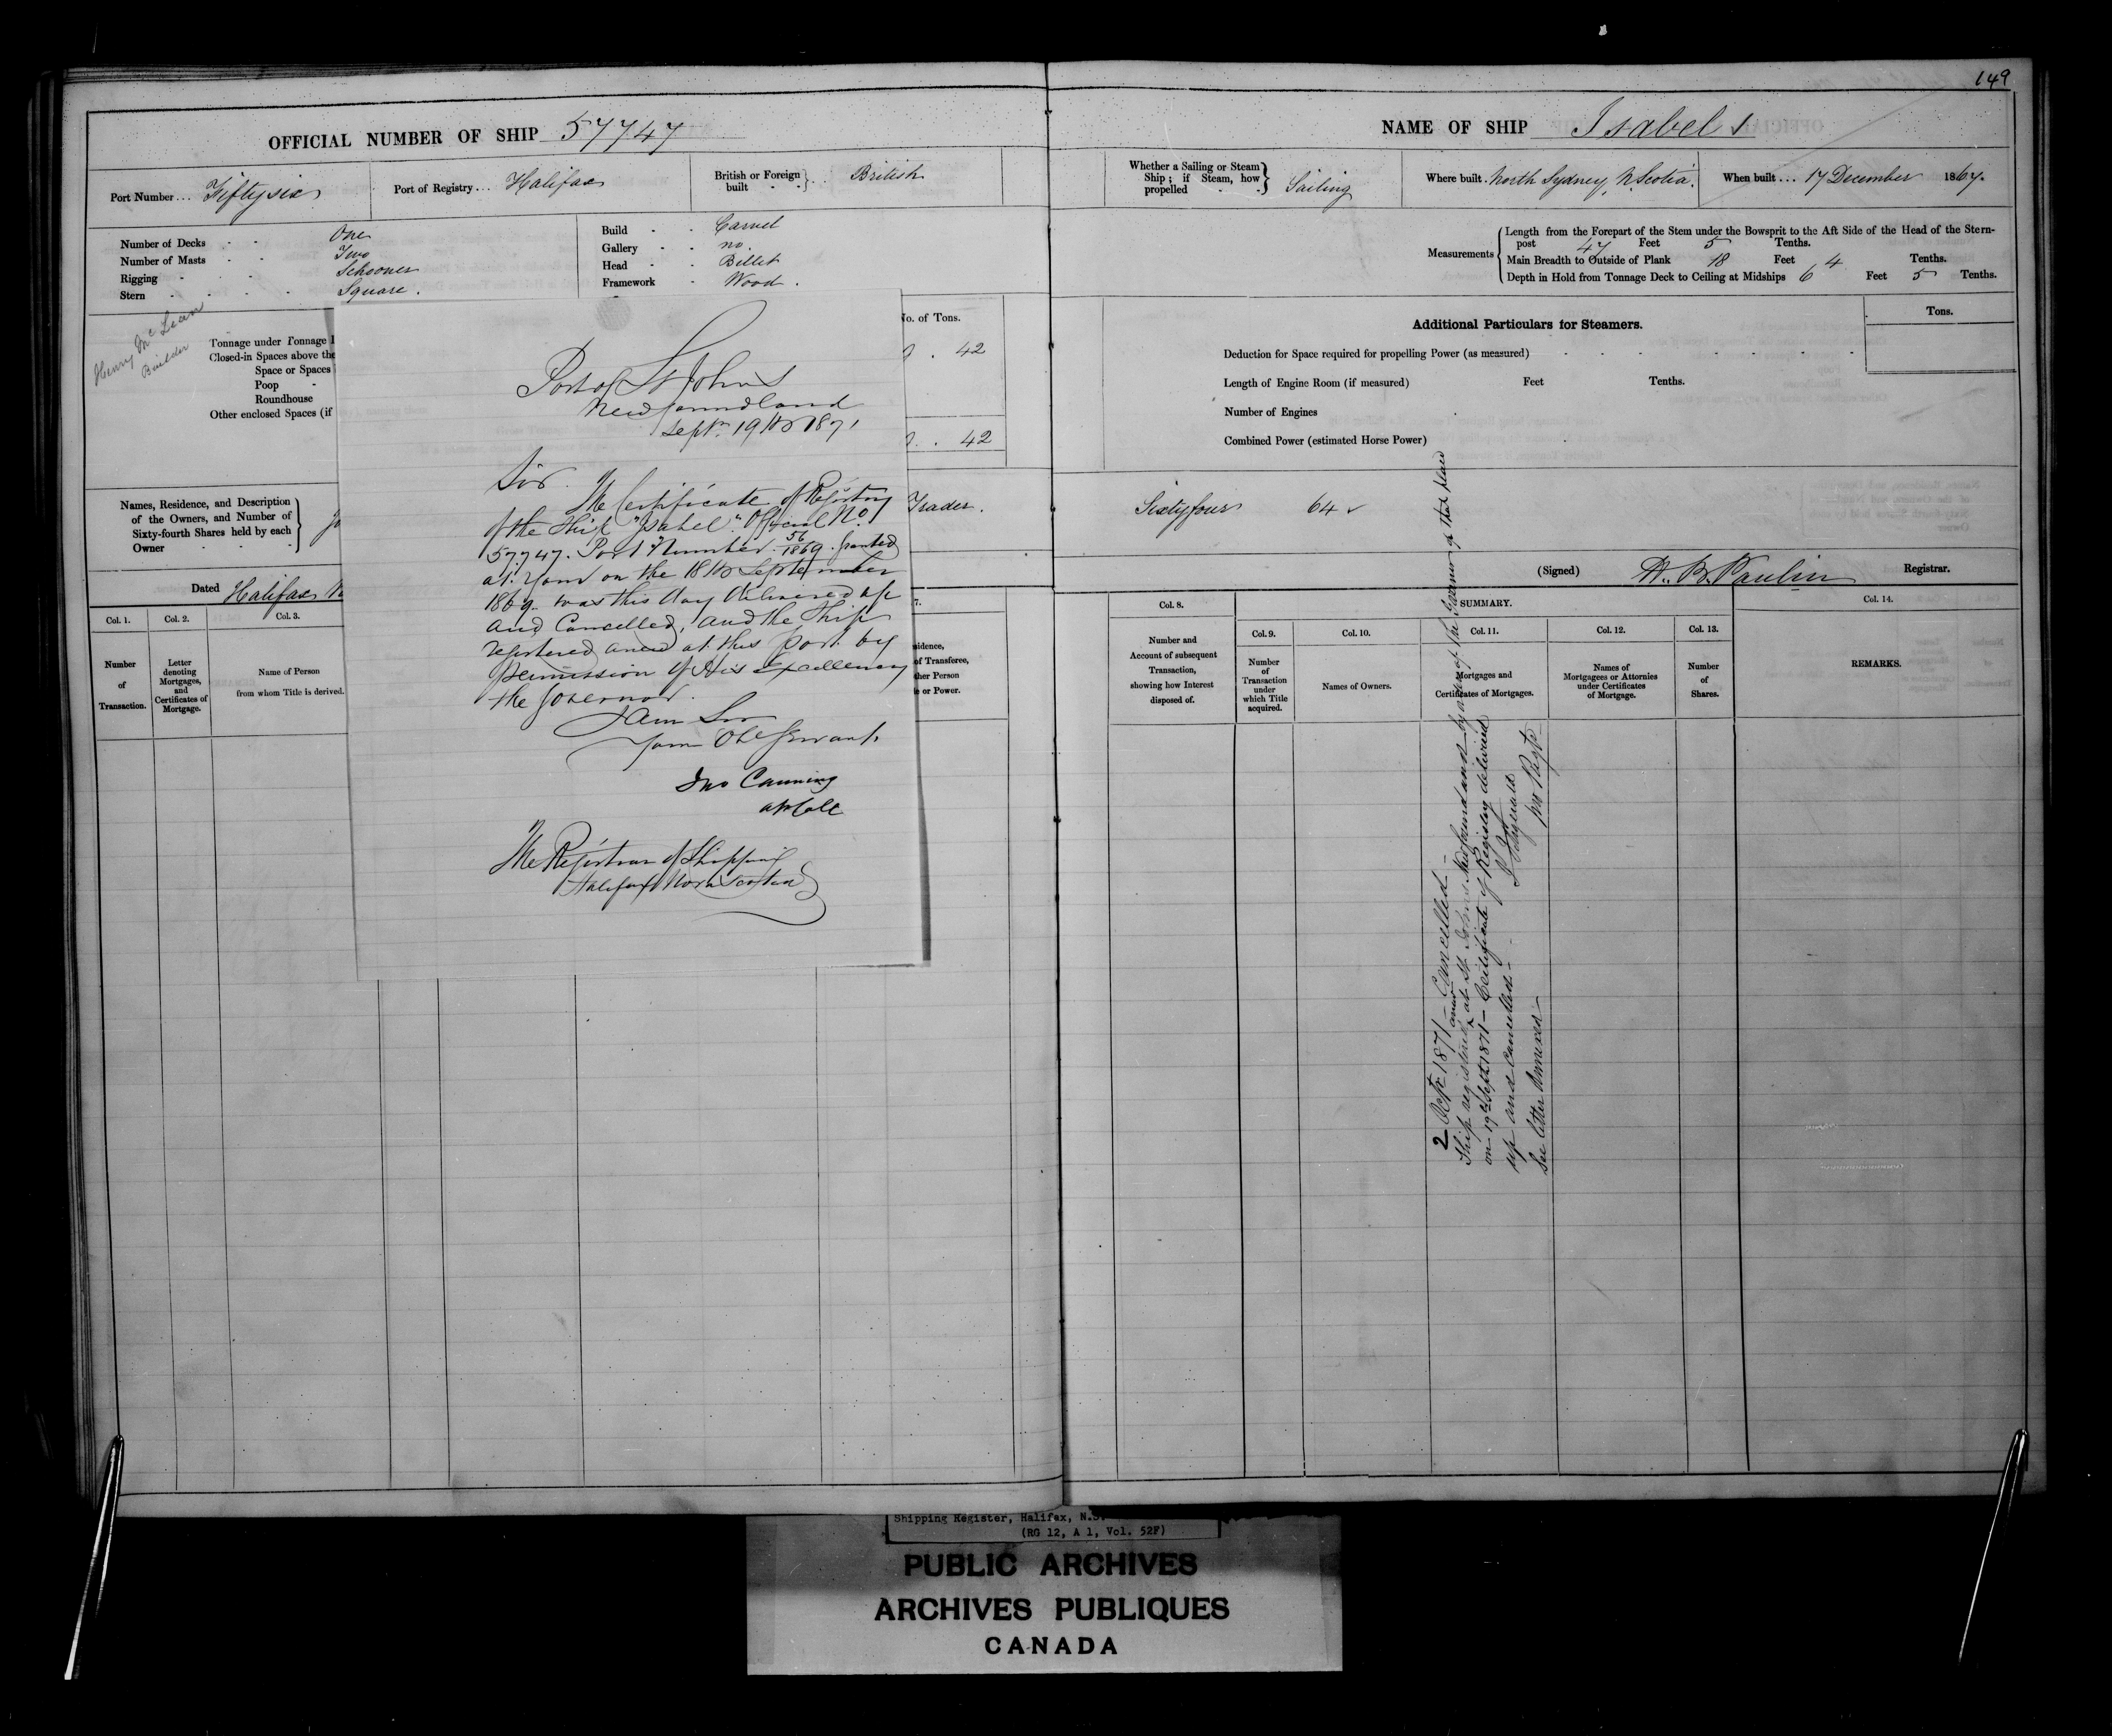 149
OFFICIAL NUMBER OF SHIP 57747
Port Number... Fifty six
Port of Registry... Halifax
British or Foreign built } British
Number of Decks - - One
Number of Masts - - Two
Rigging - - Schooner
Stern - - - - Square.
Build - - Carvel
Gallery - - no
Head - - Billet
Framework - Wood.
Henry McLean
Builder
Tonnage under Tonnage
Closed-in Spaces above the
Space or Spaces
Poop -
Roundhouse
Other enclosed Spaces (if
No. of Tons.
42
42
Names, Residence, and Description
of the Owners, and Number of
Sixty-fourth Shares held by each
Owner - - -
Trader.
Dated Halifax
Col. 1.
Number
of
Transaction.
Col. 2.
Letter
denoting
Mortgages,
and
Certificates of
Mortgage.
Col. 3.
Name of Person
from whom Title is derived.
7.
sidence,
of Transferee,
ther Person
e or Power.
Port of St Johns
Newfoundland
Septr. 19th 1871
Sir.
The Certificate of Registry
of the Ship "Isabel" Official No.
57.747. Port Number 56/1869 granted
at your on the 18th September
1869 was this day delivered up
and Cancelled, and the Ship
registered anew at this port by
permission of His Excellency
the Governor.
I am Sir
Your Obt Servant
Jno Canning
The Registrar of Shipping
Halifax Nova Scotia
NAME OF SHIP Isabel
Whether a Sailing or Steam
Ship; if Steam, how
propelled - - } Sailing
Where built. North Sydney, N. Scotia.
When built ... 17 December 1867.
Measurements
Length from the Forepart of the Stem under the Bowsprit to the Aft Side of the Head of the Stern-
post 47 Feet 5 Tenths.
Main Breadth to Outside of Plank 18 Feet 4 Tenths.
Depth in Hold from Tonnage Deck to Ceiling at Midships 6 Feet 5 Tenths.
Additional Particulars for Steamers.
Tons.
Deduction for Space required for propelling Power (as measured)
Length of Engine Room (if measured) Feet Tenths.
Number of Engines
Combined Power (estimated Horse Power)
Sixty four 64
(Signed) Paulin Registrar.
Col. 8.
Number and
Account of subsequent
Transaction,
showing how Interest
disposed of.
SUMMARY.
Col. 9.
Number
of
Transaction
under
which Title
acquired.
Col. 10.
Names of Owners.
Col. 11.
Mortgages and
Certificates of Mortgages.
Col. 12.
Names of
Mortgagees or Attorneys
under Certificates
of Mortgage.
Col. 13.
Number
of
Shares.
Col. 14.
REMARKS.
2 Octr 1871 - Cancelled -
Ship registered anew at St Johns Newfoundland by order of the Governor of that place
on 19th Septr 1871 - Certificate of Registry delivered
up and Cancelled -
See letter Annexed -
Shipping Register, Halifax, N.S.
(RG 12, A 1, Vol. 52F)
PUBLIC ARCHIVES
ARCHIVES PUBLIQUES
CANADA